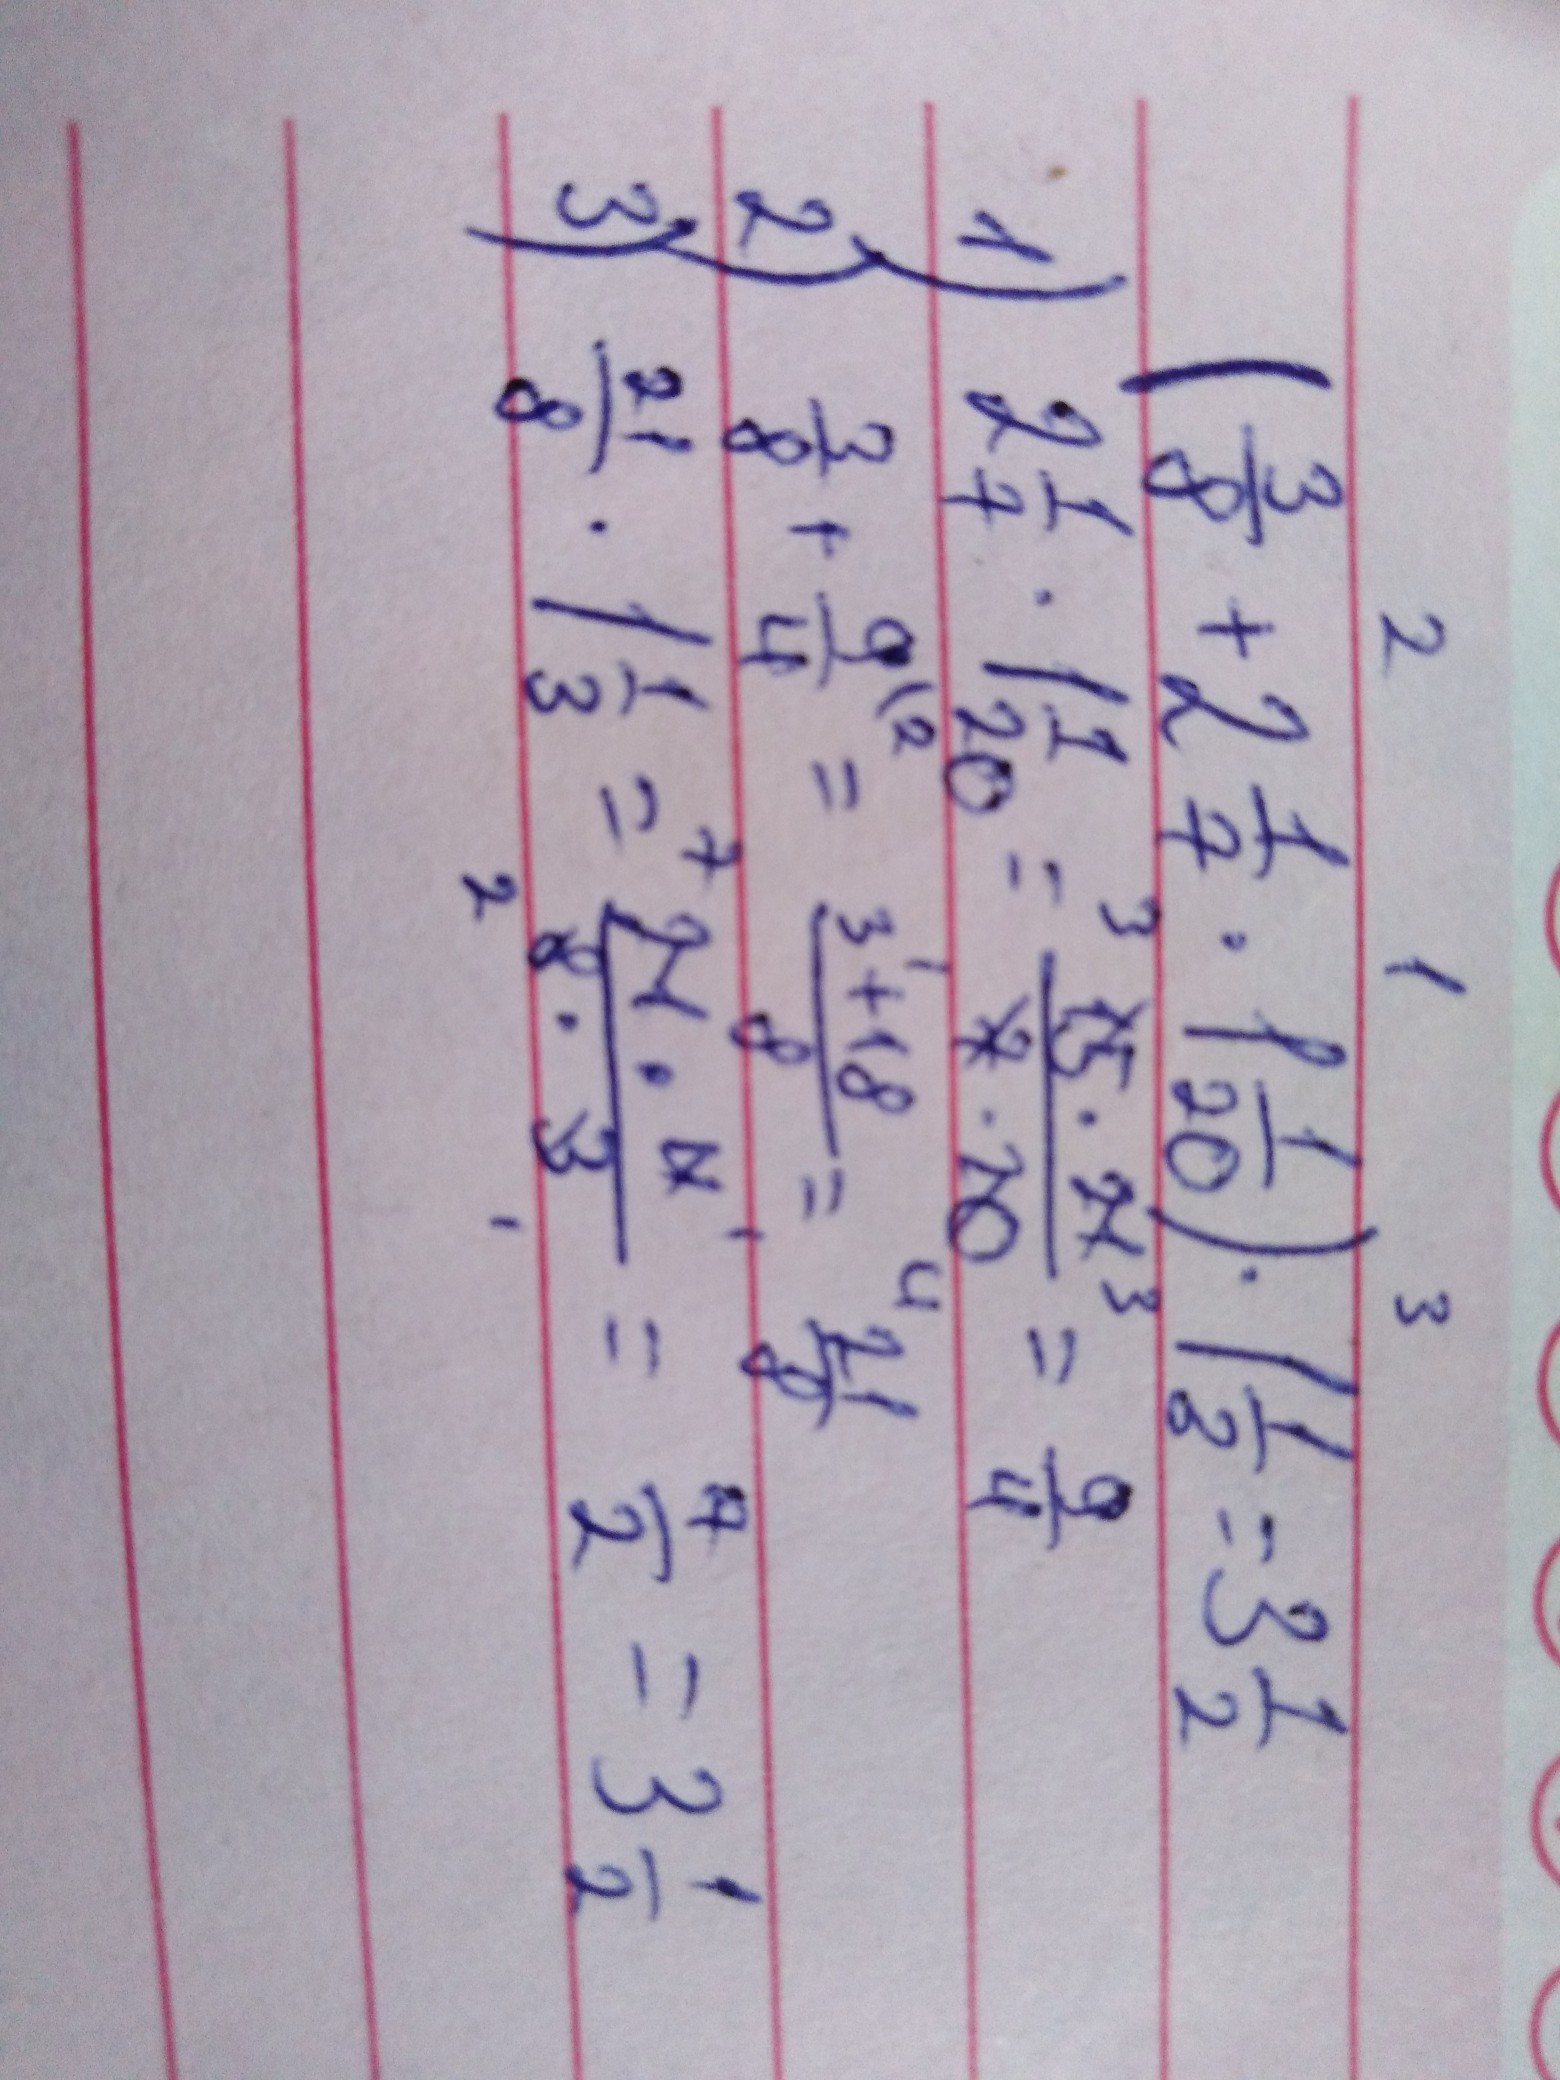 2 1 3
(3/8 + 2 1/7 · 1 1/20) · 1 1/2 = 3 1/2
1) 2 1/7 · 1 1/20 = 3 15 · 21 3 / 1 7 · 20 4 = 9/4
2) 3/8 + 9/4 (2 = 3 + 18 / 8 = 21/8
3) 21/8 · 1 1/3 = 7 21 · 4 1 / 2 8 · 3 1 = 7/2 = 3 1/2